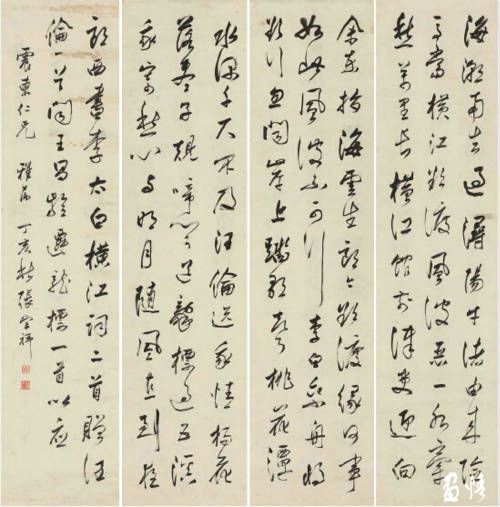 海潮南去過潯陽牛渚由來險
馬當橫江欲渡風波惡一水牽
愁萬里長橫江館前津吏迎向
余東指海雲生郎今欲渡緣何事
如此風波不可行李白乘舟將
欲行忽聞岸上蹋歌聲桃花潭
水深千尺不及汪倫送我情楊花
落盡子規啼聞道龍標過五溪
我寄愁心与明月隨風直到夜
郎西書李太白橫江詞二首贈汪
倫一首聞王昌齡遷龍標一首以應
震東仁兄 雅屬 丁亥秋張宗祥